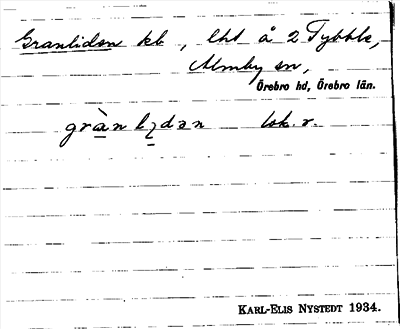 Granliden kb, lht å 2 Tybble,
Almby sn,
Örebro hd, Örebro län.
grànlidən lok. v.
KARL-ELIS NYSTEDT 1934.